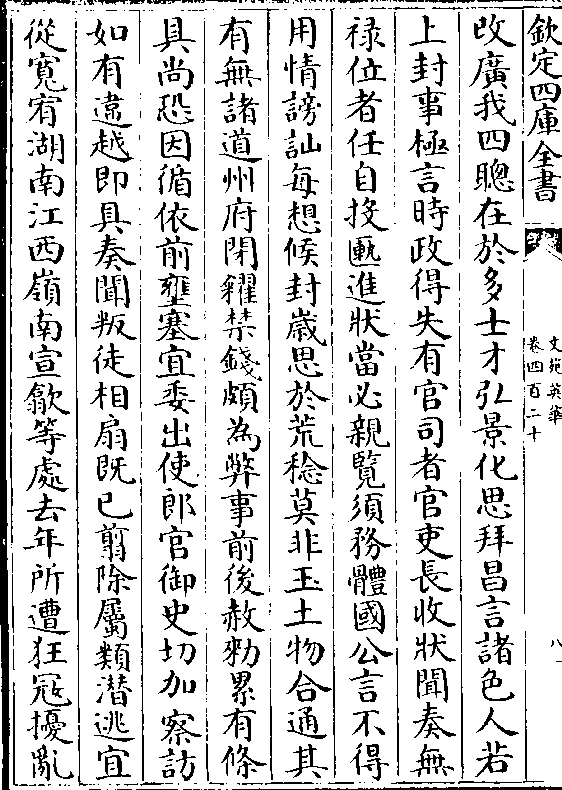 欽定四庫全書
文苑英華
卷四百二十
八
改廣我四聰在於多士才弘景化思拜昌言諸色人若
上封事極言時政得失有官司者官吏長收狀聞奏無
祿位者任自投匭進狀當必親覽須務體國公言不得
用情謗訕每想候封嵗思於荒稔莫非王土物合通其
有無諸道州府閉糴禁錢頗為弊事前後赦勑累有條
具尚恐因循依前壅塞宜委出使郎官御史切加察訪
如有違越即具奏聞叛徒相扇既已翦除屬類潜逃宜
從寛宥湖南江西嶺南宣歙等處去年所遭狂冦擾亂